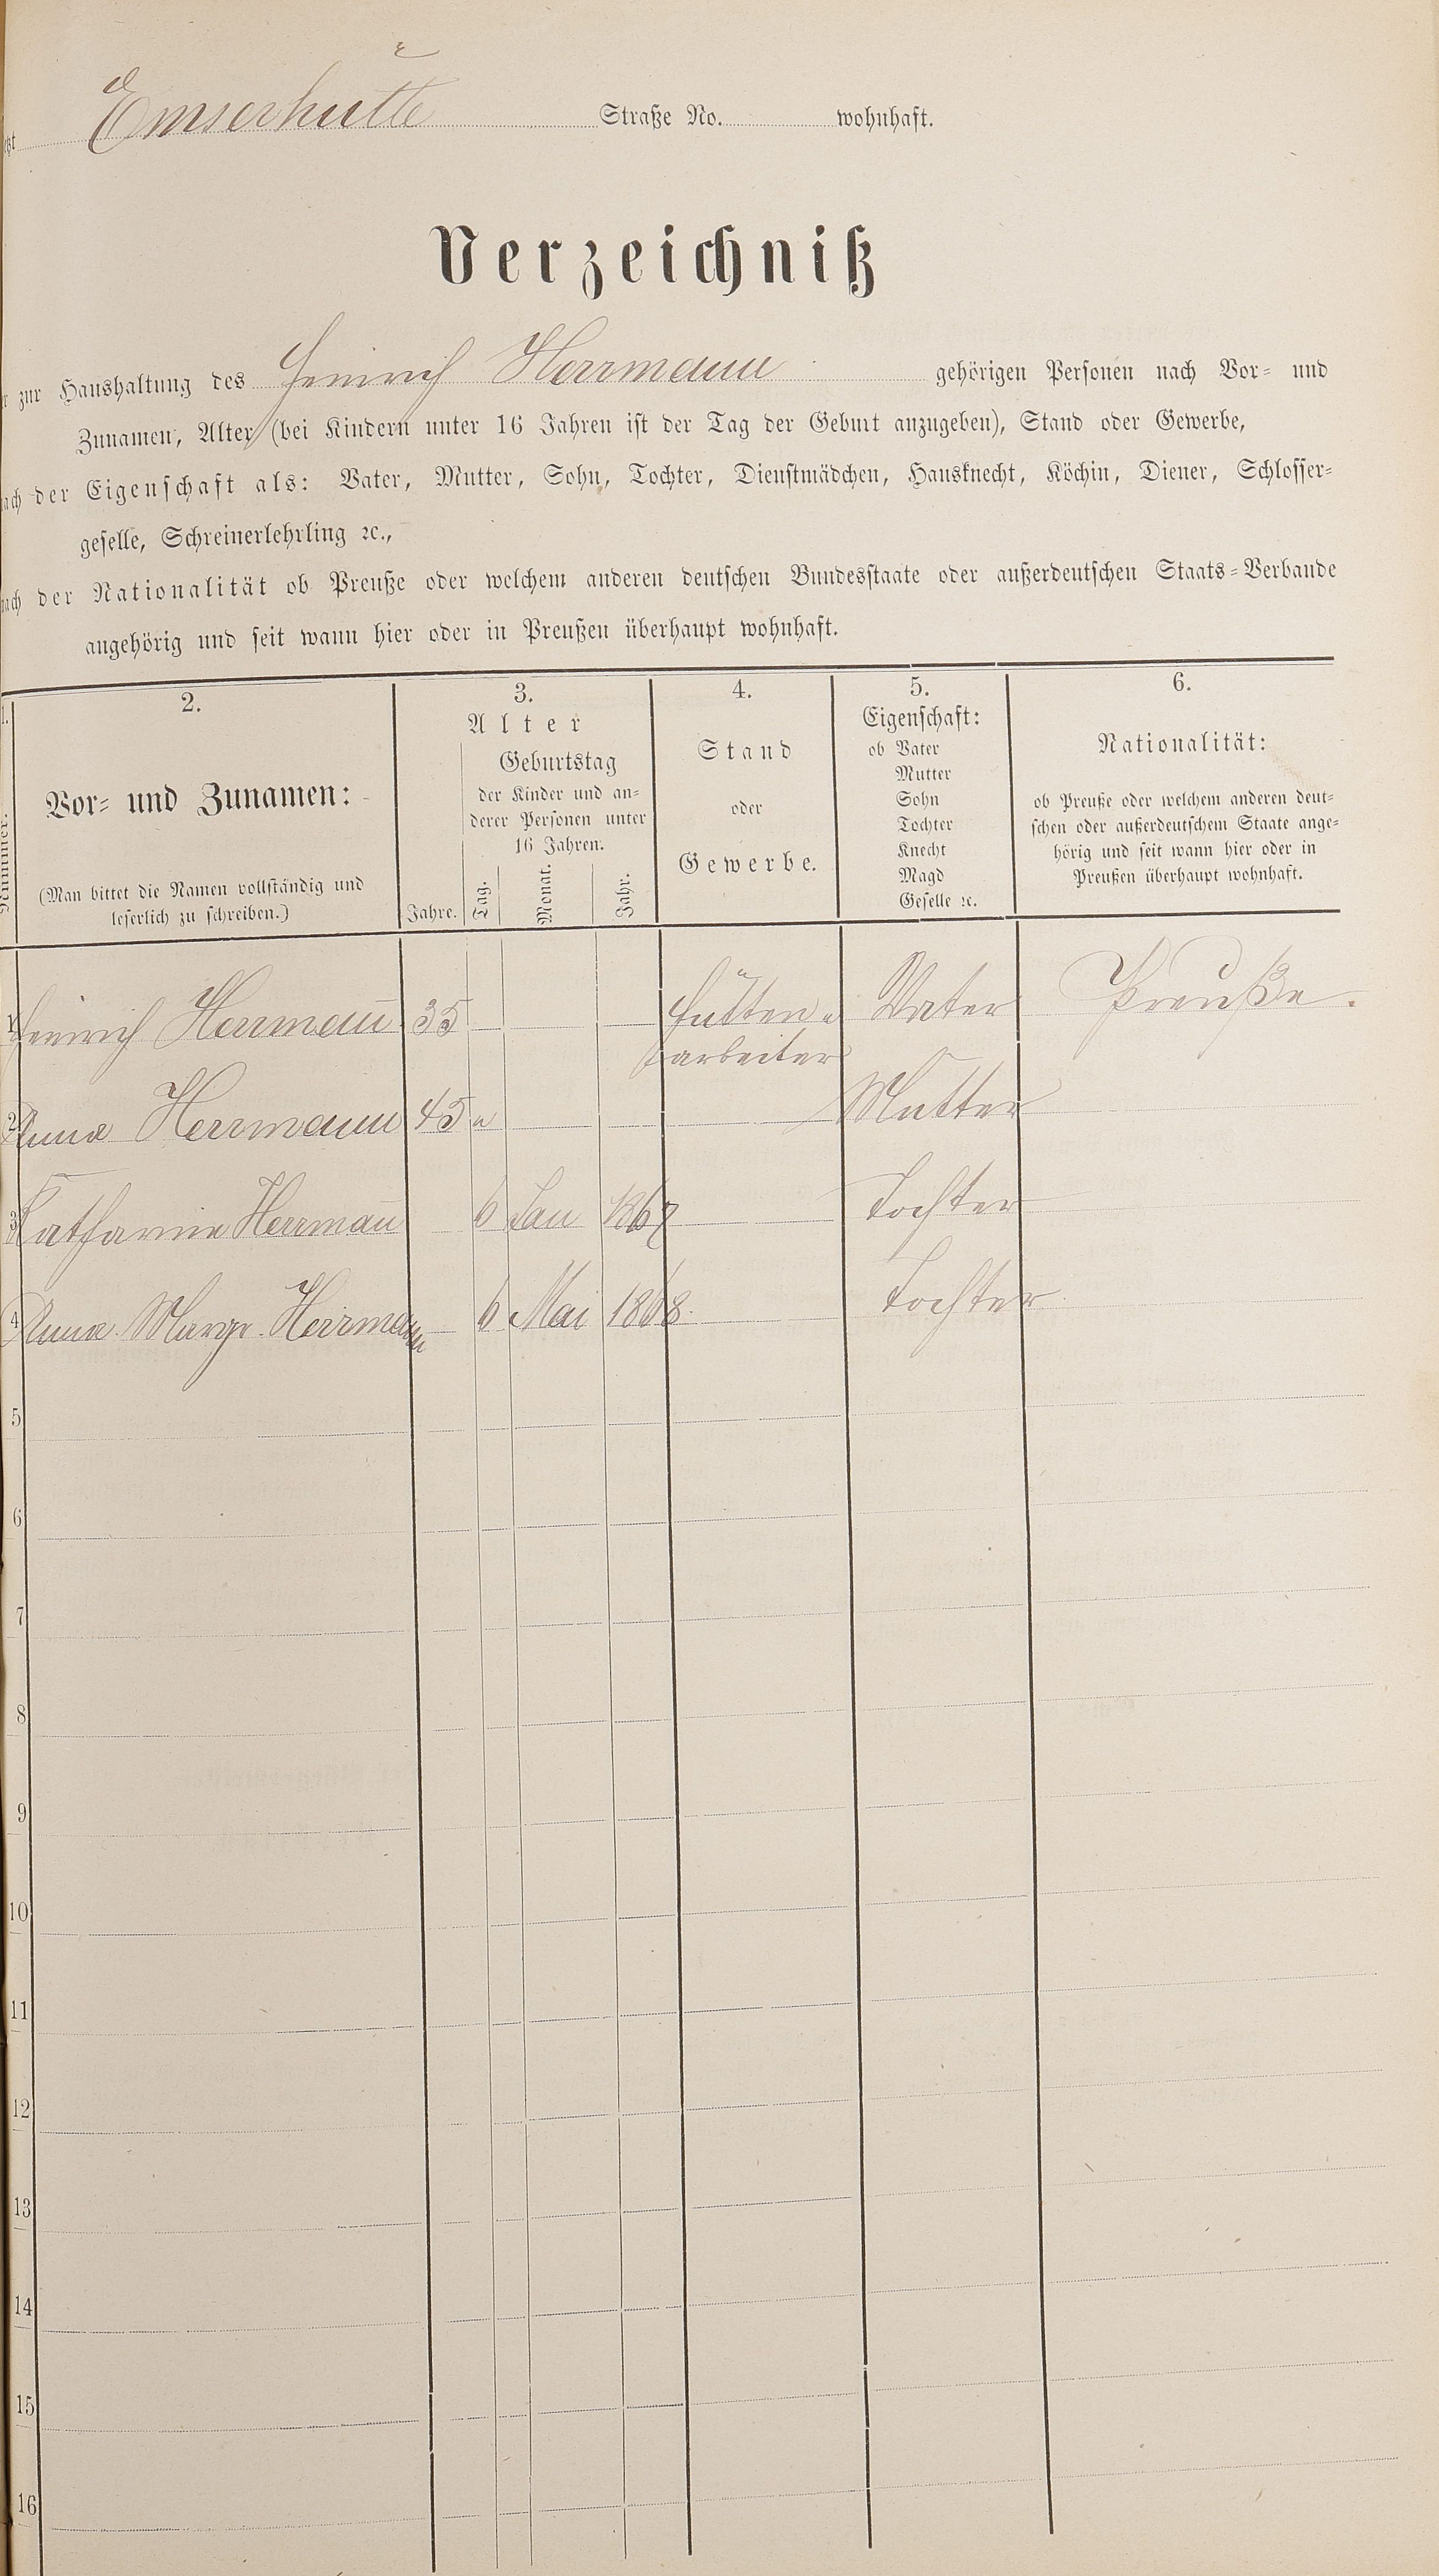 Emserhütte Straße No. wohnhaft.
Verzeichniß
zur Haushaltung des Heinrich Herrmann gehörigen Personen nach Vor- und
Zunamen, Alter (bei Kindern unter 16 Jahren ist der Tag der Geburt anzugeben), Stand oder Gewerbe,
nach der Eigenschaft als: Vater, Mutter, Sohn, Tochter, Dienstmädchen, Hausknecht, Köchin, Diener, Schlosser-
geselle, Schreinerlehrling ꝛc.,
nach der Nationalität ob Preuße oder welchem anderen deutschen Bundesstaate oder außerdeutschen Staats-Verbande
angehörig und seit wann hier oder in Preußen überhaupt wohnhaft.
1. 2. 3. 4. 5. 6.
Nummer.
Vor- und Zunamen:
(Man bittet die Namen vollständig und
leserlich zu schreiben.)
Alter
Jahre.
Geburtstag
der Kinder und an-
derer Personen unter
16 Jahren.
Tag. Monat. Jahr.
Stand
oder
Gewerbe.
Eigenschaft:
ob Vater
Mutter
Sohn
Tochter
Knecht
Magd
Geselle ꝛc.
Nationalität:
ob Preuße oder welchem anderen deut-
schen oder außerdeutschem Staate ange-
hörig und seit wann hier oder in
Preußen überhaupt wohnhaft.
1 Heinrich Herrman̄ 35 Hütten Vater Preuße.
arbeiter
2 Anna Herrmann 45 Mutter
3 Katharina Herrman̄ 6 Jan 1867 Tochter
4 Anna Margr. Herrmann 6 Mai 1868. Tochter
5
6
7
8
9
10
11
12
13
14
15
16